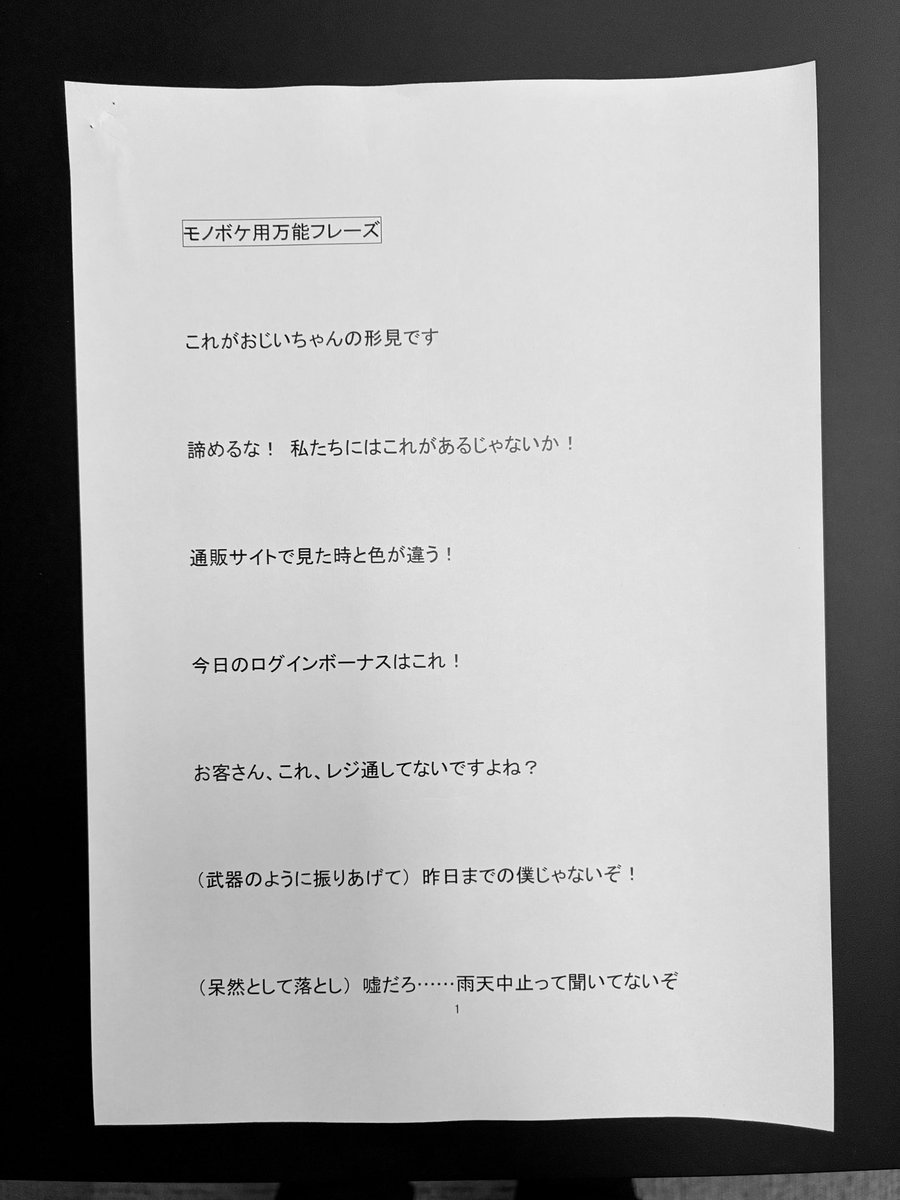 モノボケ用万能フレーズ
これがおじいちゃんの形見です
諦めるな！ 私たちにはこれがあるじゃないか！
通販サイトで見た時と色が違う！
今日のログインボーナスはこれ！
お客さん、これ、レジ通してないですよね？
（武器のように振りあげて） 昨日までの僕じゃないぞ！
（呆然として落とし） 嘘だろ……雨天中止って聞いてないぞ
1